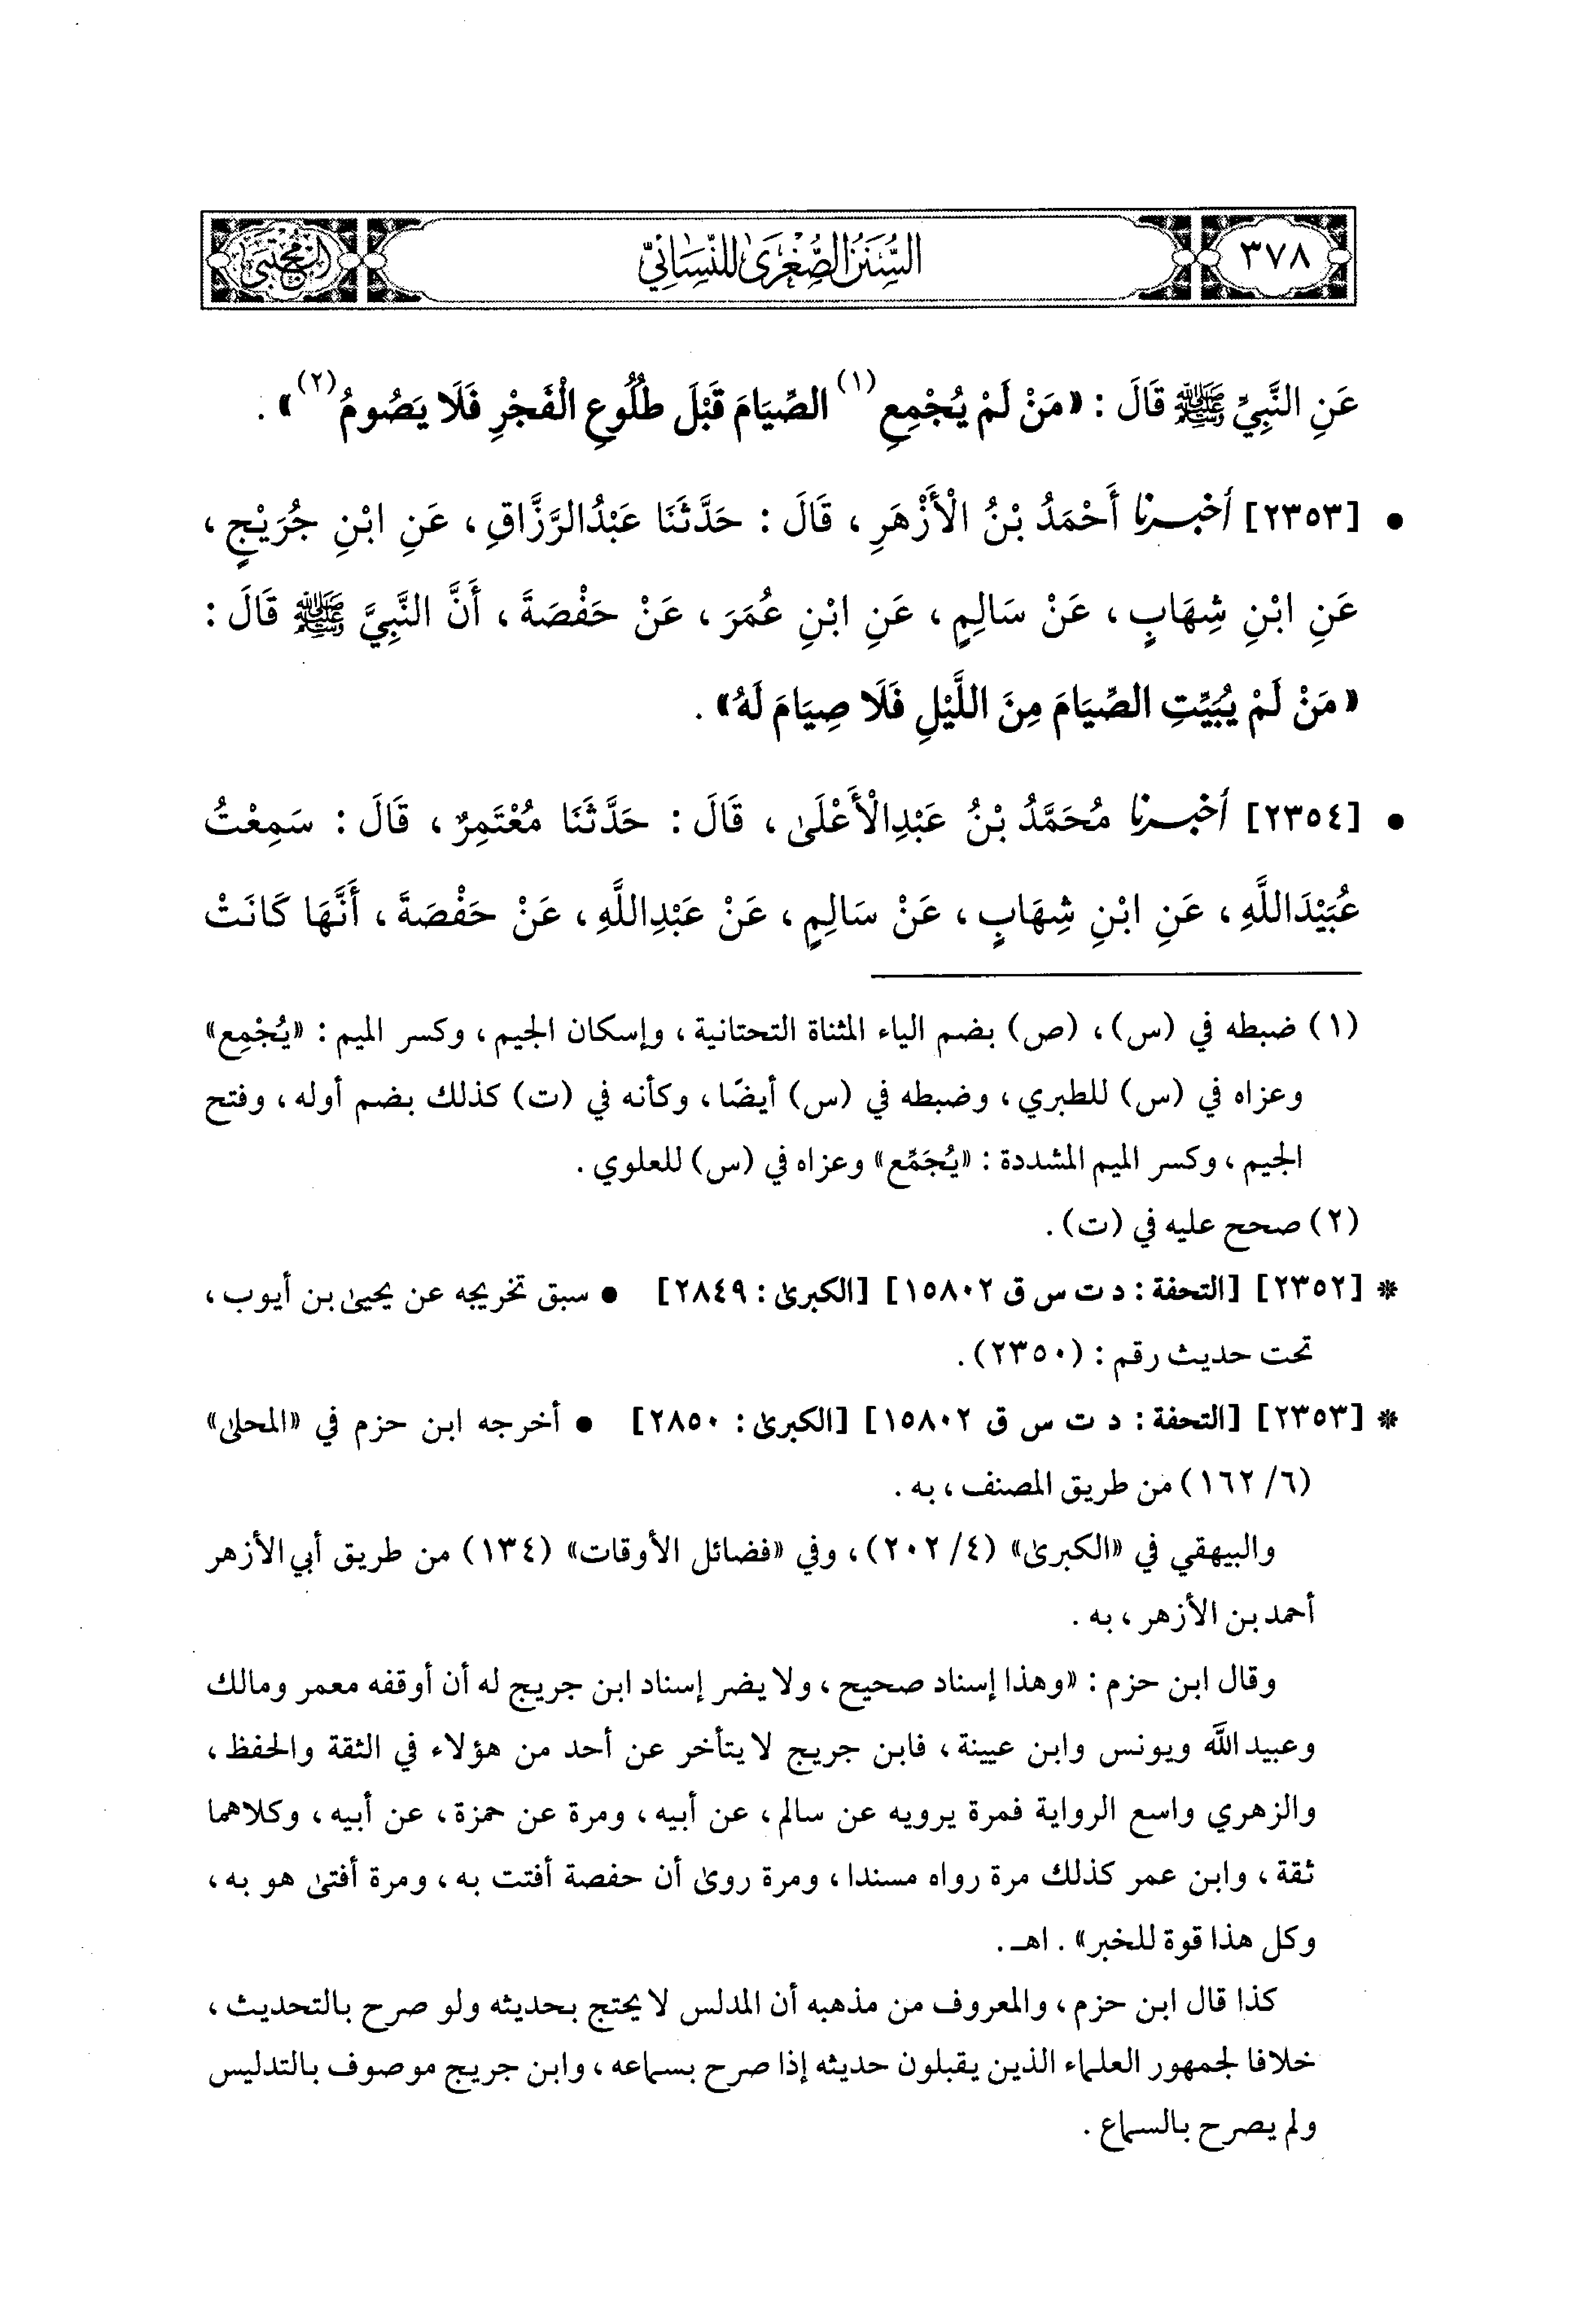 ٣٧٨
السُّنَنُ الصُّغْرَىٰ لِلنَّسَائِيِّ
المجتبى
عَنِ النَّبِيِّ ﷺ قَالَ : «مَنْ لَمْ يُجْمِعِ(١) الصِّيَامَ قَبْلَ طُلُوعِ الْفَجْرِ فَلَا يَصُومُ(٢)» .
• [٢٣٥٣] أخبرنا أَحْمَدُ بْنُ الْأَزْهَرِ ، قَالَ : حَدَّثَنَا عَبْدُالرَّزَّاقِ ، عَنِ ابْنِ جُرَيْجٍ ،
عَنِ ابْنِ شِهَابٍ ، عَنْ سَالِمٍ ، عَنِ ابْنِ عُمَرَ ، عَنْ حَفْصَةَ ، أَنَّ النَّبِيَّ ﷺ قَالَ :
«مَنْ لَمْ يُبَيِّتِ الصِّيَامَ مِنَ اللَّيْلِ فَلَا صِيَامَ لَهُ» .
• [٢٣٥٤] أخبرنا مُحَمَّدُ بْنُ عَبْدِالْأَعْلَىٰ ، قَالَ : حَدَّثَنَا مُعْتَمِرٌ ، قَالَ : سَمِعْتُ
عُبَيْدَاللَّهِ ، عَنِ ابْنِ شِهَابٍ ، عَنْ سَالِمٍ ، عَنْ عَبْدِاللَّهِ ، عَنْ حَفْصَةَ ، أَنَّهَا كَانَتْ
(١) ضبطه في (س) ، (ص) بضم الياء المثناة التحتانية ، وإسكان الجيم ، وكسر الميم : «يُجْمِع»
وعزاه في (س) للطبري ، وضبطه في (س) أيضًا ، وكأنه في (ت) كذلك بضم أوله ، وفتح
الجيم ، وكسر الميم المشددة : «يُجَمِّع» وعزاه في (س) للعلوي .
(٢) صحح عليه في (ت) .
* [٢٣٥٢] [التحفة : د ت س ق ١٥٨٠٢] [الكبرىٰ : ٢٨٤٩] • سبق تخريجه عن يحيىٰ بن أيوب ،
تحت حديث رقم : (٢٣٥٠) .
* [٢٣٥٣] [التحفة : د ت س ق ١٥٨٠٢] [الكبرىٰ : ٢٨٥٠] • أخرجه ابن حزم في «المحلىٰ»
(٦/ ١٦٢) من طريق المصنف ، به .
والبيهقي في «الكبرىٰ» (٤/ ٢٠٢) ، وفي «فضائل الأوقات» (١٣٤) من طريق أبي الأزهر
أحمد بن الأزهر ، به .
وقال ابن حزم : «وهذا إسناد صحيح ، ولا يضر إسناد ابن جريج له أن أوقفه معمر ومالك
وعبيد اللَّه ويونس وابن عيينة ، فابن جريج لا يتأخر عن أحد من هؤلاء في الثقة والحفظ ،
والزهري واسع الرواية فمرة يرويه عن سالم ، عن أبيه ، ومرة عن حمزة ، عن أبيه ، وكلاهما
ثقة ، وابن عمر كذلك مرة رواه مسندا ، ومرة روىٰ أن حفصة أفتت به ، ومرة أفتىٰ هو به ،
وكل هذا قوة للخبر» . اهـ .
كذا قال ابن حزم ، والمعروف من مذهبه أن المدلس لا يحتج بحديثه ولو صرح بالتحديث ،
خلافا لجمهور العلماء الذين يقبلون حديثه إذا صرح بسماعه ، وابن جريج موصوف بالتدليس
ولم يصرح بالسماع .